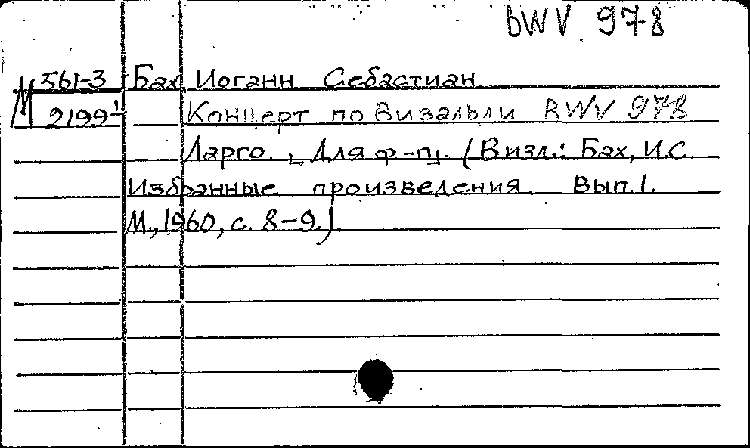 BWV 978
М 561-3 Бах Иоганн Себастиан
2199¹ Концерт по Вивальди BWV 978
Ларго. Для ф-п. (В изд.: Бах, И.С.
Избранные произведения. Вып.1.
М., 1960, с. 8-9.)